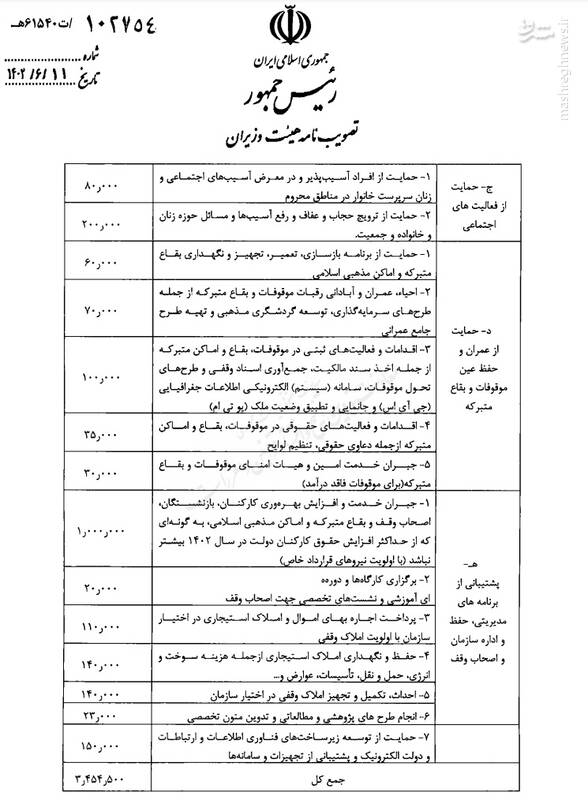 ۱۰۲۷۵۴ /ت۶۱۵۴۰هـ
شماره
تاریخ ۱۴۰۲/۶/۱۱
جمهوری اسلامی ایران
رئیس جمهور
تصویب نامه هیئت وزیران
مشرق
mashreghnews.ir
ج- حمایت
از فعالیت های
اجتماعی
۱- حمایت از افراد آسیب‌پذیر و در معرض آسیب‌های اجتماعی و
زنان سرپرست خانوار در مناطق محروم
۸۰٫۰۰۰
۲- حمایت از ترویج حجاب و عفاف و رفع آسیب‌ها و مسائل حوزه زنان
و خانواده و جمعیت.
۲۰۰٫۰۰۰
د- حمایت
از عمران و
حفظ عین
موقوفات و بقاع
متبرکه
۱- حمایت از برنامه بازسازی، تعمیر، تجهیز و نگهداری بقاع
متبرکه و اماکن مذهبی اسلامی
۶۰٫۰۰۰
۲- احیاء، عمران و آبادانی رقبات موقوفات و بقاع متبرکه از جمله
طرح‌های سرمایه‌گذاری، توسعه گردشگری مذهبی و تهیه طرح
جامع عمرانی
۷۰٫۰۰۰
۳- اقدامات و فعالیت‌های ثبتی در موقوفات، بقاع و اماکن متبرکه
از جمله اخذ سند مالکیت، جمع‌آوری اسناد وقفی و طرح‌های
تحول موقوفات، سامانه (سیستم) الکترونیکی اطلاعات جغرافیایی
(جی آی اس) و جانمایی و تطبیق وضعیت ملک (یو تی ام)
۱۰۰٫۰۰۰
۴- اقدامات و فعالیت‌های حقوقی در موقوفات، بقاع و اماکن
متبرکه ازجمله دعاوی حقوقی، تنظیم لوایح
۳۵٫۰۰۰
۵- جبران خدمت امین و هیات امنای موقوفات و بقاع
متبرکه(برای موقوفات فاقد درآمد)
۳۰٫۰۰۰
هـ-
پشتیبانی از
برنامه های
مدیریتی، حفظ
و اداره سازمان
و اصحاب وقف
۱- جبران خدمت و افزایش بهره‌وری کارکنان، بازنشستگان،
اصحاب وقف و بقاع متبرکه و اماکن مذهبی اسلامی، به گونه‌ای
که از حداکثر افزایش حقوق کارکنان دولت در سال ۱۴۰۲ بیشتر
نباشد (با اولویت نیروهای قرارداد خاص)
۱٫۰۰۰٫۰۰۰
۲- برگزاری کارگاه‌ها و دورده
ای آموزشی و نشست‌های تخصصی جهت اصحاب وقف
۲۰٫۰۰۰
۳- پرداخت اجاره بهای اموال و املاک استیجاری در اختیار
سازمان با اولویت املاک وقفی
۱۱۰٫۰۰۰
۴- حفظ و نگهداری املاک استیجاری ازجمله هزینه سوخت و
انرژی، حمل و نقل، تأسیسات، عوارض و...
۱۴۰٫۰۰۰
۵- احداث، تکمیل و تجهیز املاک وقفی در اختیار سازمان
۱۴۰٫۰۰۰
۶- انجام طرح های پژوهشی و مطالعاتی و تدوین متون تخصصی
۲۳٫۰۰۰
۷- حمایت از توسعه زیرساخت‌های فناوری اطلاعات و ارتباطات
و دولت الکترونیک و پشتیبانی از تجهیزات و سامانه‌ها
۱۵۰٫۰۰۰
جمع کل
۳٫۴۵۴٫۵۰۰